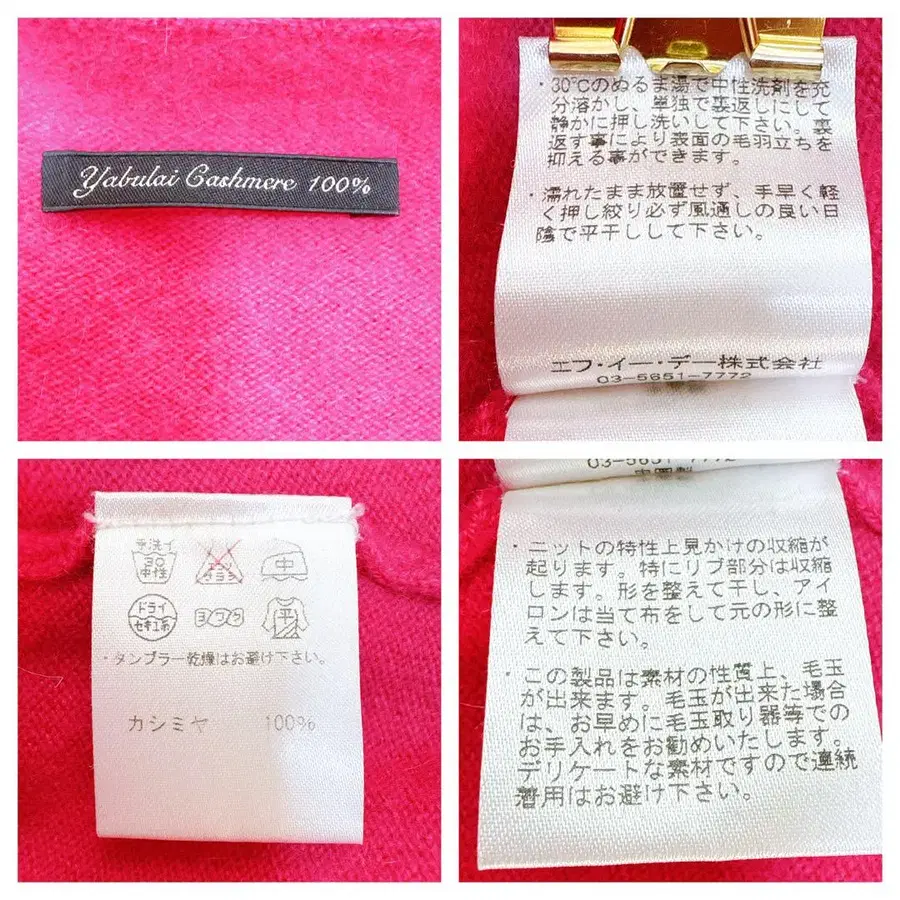 Yabulai Cashmere 100%
・30℃のぬるま湯で中性洗剤を充
分溶かし、単独で裏返しにして
静かに押し洗いして下さい。裏
返す事により表面の毛羽立ちを
抑える事ができます。
・濡れたまま放置せず、手早く軽
く押し絞り必ず風通しの良い日
陰で平干しして下さい。
エフ・イー・デー株式会社
03-5651-7772
手洗イ
30
中性
エンソサラシ
中
ドライ
セキユ系
ヨワク
平
・タンブラー乾燥はお避け下さい。
カシミヤ 100%
03-5651-7772
中国製
・ニットの特性上見かけの収縮が
起ります。特にリブ部分は収縮
します。形を整えて干し、アイ
ロンは当て布をして元の形に整
えて下さい。
・この製品は素材の性質上、毛玉
が出来ます。毛玉が出来た場合
は、お早めに毛玉取り器等での
お手入れをお勧めいたします。
デリケートな素材ですので連続
着用はお避け下さい。